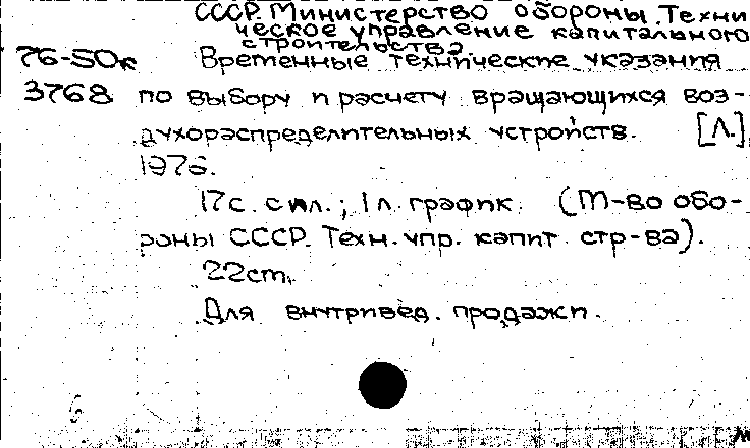 СССР. Министерство обороны. Техни
ческое управление капитального
строительства.
76-50к Временные технические указания
3768 по выбору и расчету вращающихся воз-
духораспределительных устройств. [Л.],
1976.
17с. с ил.; 1л. график. (М-во обо-
роны СССР. Техн. упр. капит. стр-ва).
22cm.
Для внутривед. продажи.